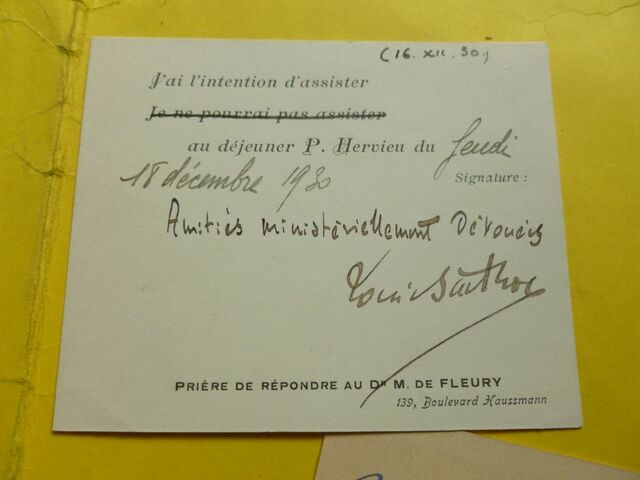 (16. XII. 30)
J'ai l'intention d'assister
Je ne pourrai pas assister
au déjeuner P. Hervieu du Jeudi
18 décembre 1930
Signature :
Amitiés ministériellement Dévouées
Louis Barthou
PRIÈRE DE RÉPONDRE AU Dr M. DE FLEURY
139, Boulevard Haussmann